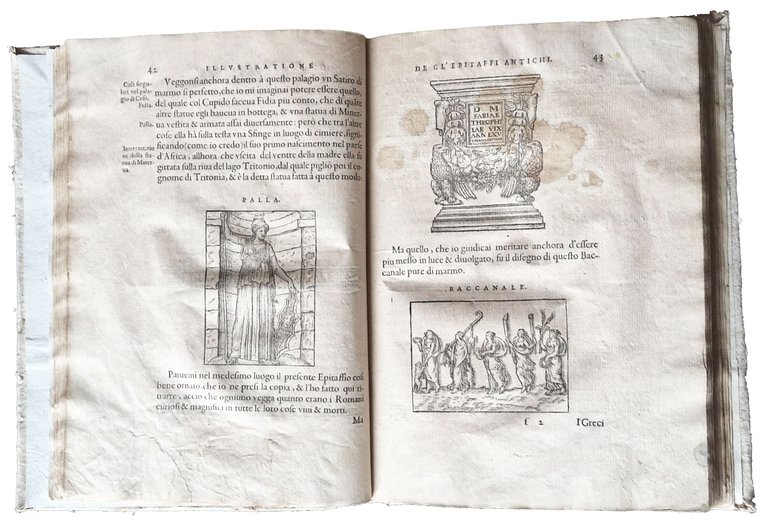 42 ILLVSTRATIONE
Veggonsi anchora dentro à questo palagio vn Satiro di
marmo si perfetto, che io mi imaginai potere essere quello,
del quale col Cupido faceua Fidia piu conto, che di quãte
altre statue egli haueua in bottega, & vna statua di Miner
ua vestita & armata assai diuersamente: però che tra l'altre
cose ella hà sulla testa vn Sfinge in luogo di cimiere, signi
ficando (come io credo) il suo primo nascimento nel paese
d'Africa, allhora che vscita del ventre della madre ella fu
gittata sulla riua del lago Tritonio, dal quale pigliò poi il co
gnome di Tritonia, & è la detta statua fatta à questo modo.
Cose singu-
lari nel pala-
gio di Ceso.
Palla.
Interpretatio
ne della sta-
tua di Miner
ua.
PALLA.
Paruemi nel medesimo luogo il presente Epitaffio cosi
bene ornato, che io ne presi la copia, & l'ho fatto qui ri-
trarre, accio che ogniuno vegga quanto erano i Romani
curiosi & magnifici in tutte le loro cose viui & morti.
Ma
DE GL'EPITAFFI ANTICHI. 43
D M
FABIAE
THEOPHI
LAE VIX
ANN LXV
Ma quello, che io giudicai meritare anchora d'essere
piu messo in luce & diuolgato, fu il disegno di questo Bac-
canale pure di marmo.
BACCANALE.
f 2 I Greci